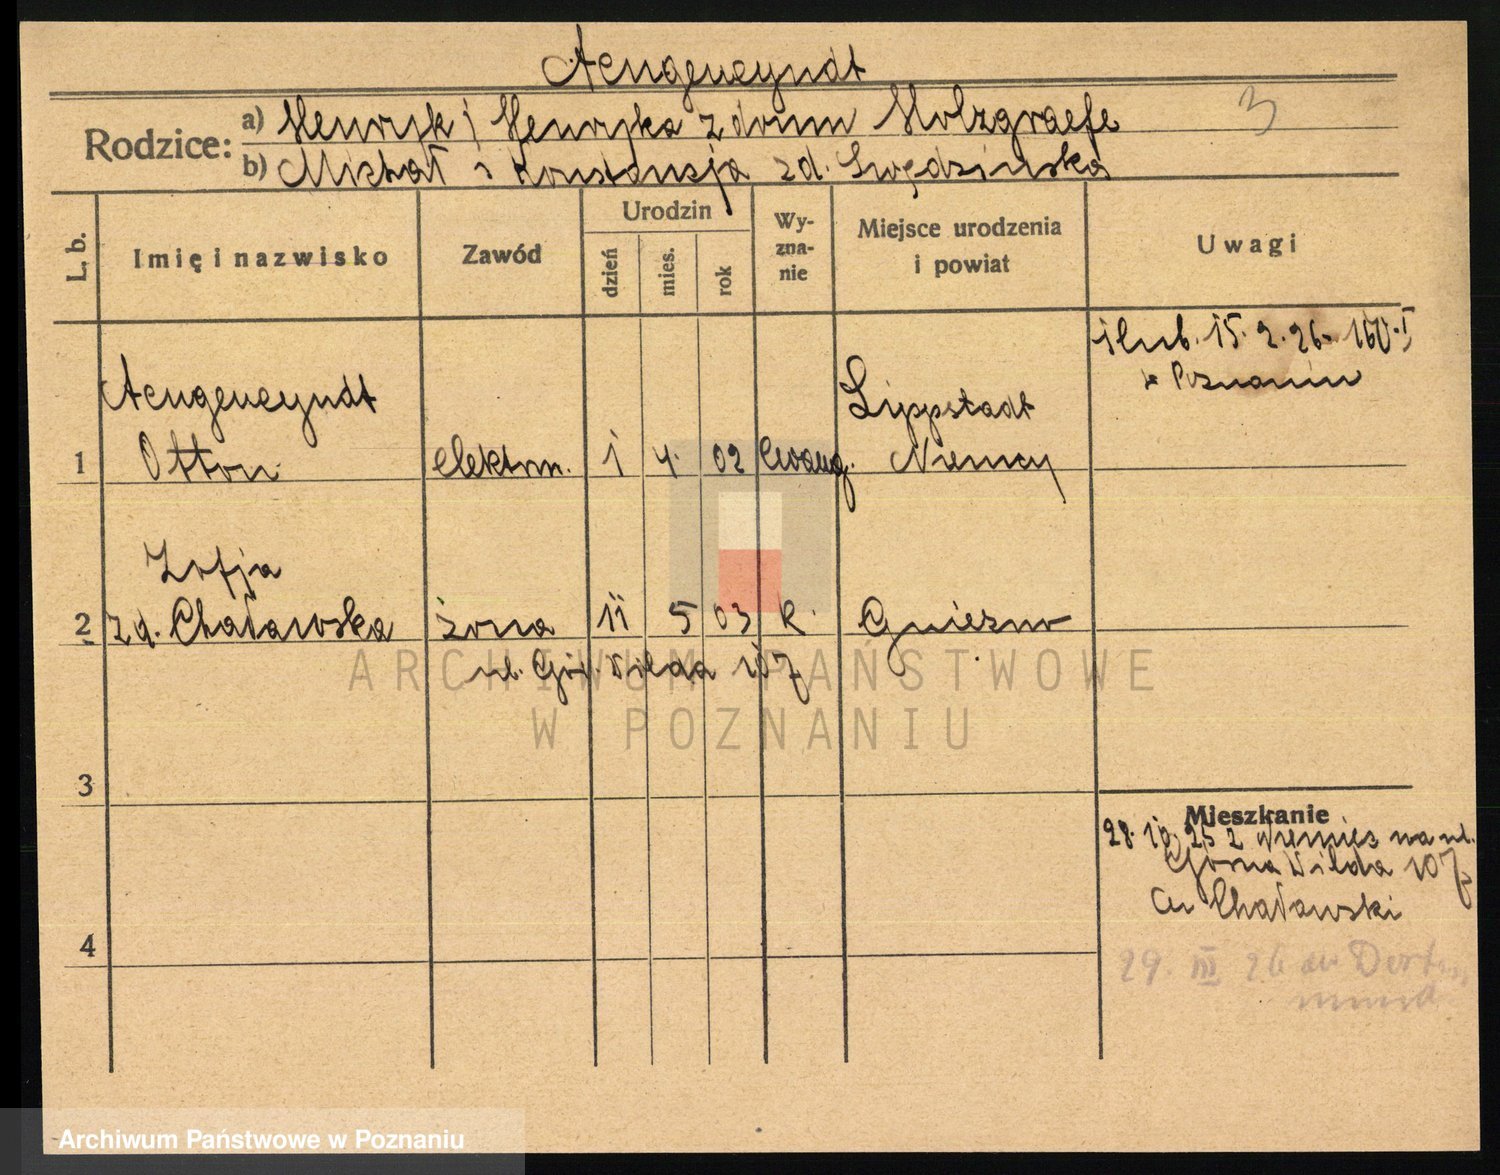 Aengeneyndt
Rodzice: a) Henryk i Henryka z domu Holzgraefe
3
b) Michał i Konstancja zd. Swędzińska
L. b.
Imię i nazwisko
Zawód
Urodzin
dzień
mies.
rok
Wy-
zna-
nie
Miejsce urodzenia
i powiat
Uwagi
ślub. 15. 2. 26
w Poznaniu
Aengeneyndt
Lippstadt
1 Otton elektrm. 1 4. 02 Ewang. Niemcy
Zofja
2 zd. Chaławska żona 11 5 03 k. Gniezno
ul. Gór. Wilda 107
ARCHIWUM PAŃSTWOWE
W POZNANIU
3
Mieszkanie
28. 10. 25 z Niemiec na ul.
Górna Wilda 107
Chaławski
4
29. III 26 Dort-
mund
Archiwum Państwowe w Poznaniu